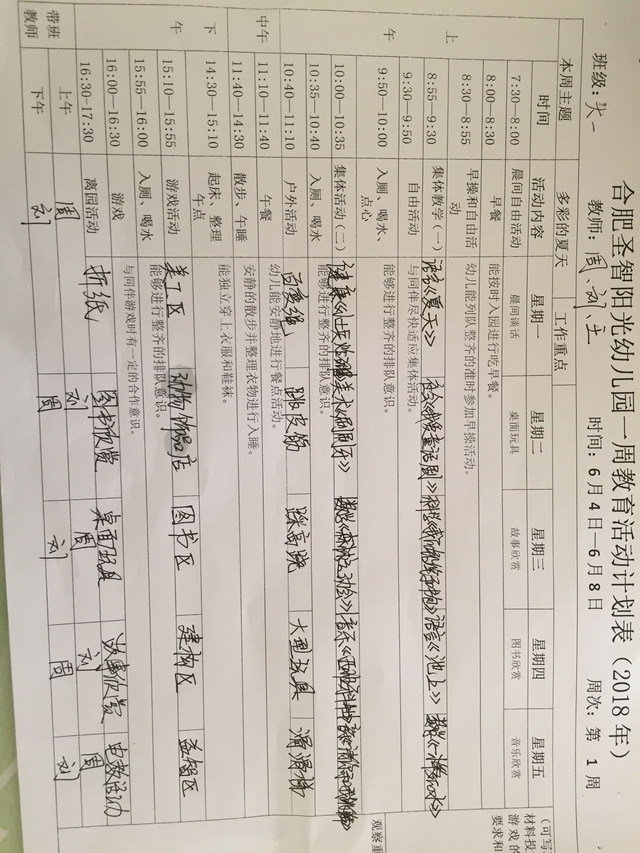 合肥圣智阳光幼儿园一周教育活动计划表（2018年）
班级：大一 教师：周、刘、王 时间：6月4日—6月8日 周次：第1周
本周主题 多彩的夏天 工作重点
时间 活动内容 星期一 星期二 星期三 星期四 星期五
7:30—8:00 晨间自由活动 晨间谈话 桌面玩具 故事欣赏 图书欣赏 音乐欣赏
上
午
8:00—8:30 早餐 能按时入园进行吃早餐。
8:30—8:55 早操和自由活动 幼儿能列队整齐的准时参加早操活动。
8:55—9:30 集体教学（一） 语言《夏天》 语言《池上》
9:30—9:50 自由活动 与同伴尽快适应集体活动。
9:50—10:00 入厕、喝水、点心 能够进行整齐的排队意识。
10:00—10:35 集体活动（二）
10:35—10:40 入厕、喝水 能够进行整齐的排队意识。
10:40—11:10 户外活动 跳皮筋 踩高跷 大型玩具 滑滑梯
中午
11:10—11:40 午餐 幼儿能安静地进行餐点活动。
11:40—14:30 散步、午睡 安静的散步并整理衣物进行入睡。
下
午
14:30—15:10 起床、整理午点 能独立穿上衣服和鞋袜。
15:10—15:55 游戏活动 美工区 图书区 建构区 益智区
15:55—16:00 入厕、喝水 能够进行整齐的排队意识。
16:00—16:30 游戏 与同伴游戏时有一定的合作意识。
16:30—17:30 离园活动 折纸 图书欣赏 桌面玩具 故事欣赏 电教活动
带班教师
上午 周 刘 周 刘 周
下午 刘 周 刘 周 刘
（可写
材料投
游戏的
要求和
观察重